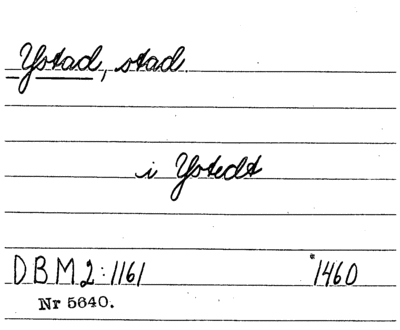 Ystad, stad.
i Ystedt
DBM 2:1161 *1460
Nr 5640.